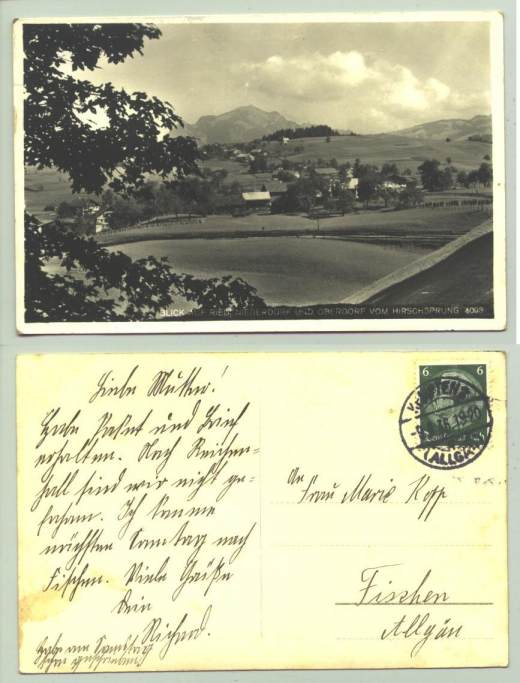 BLICK AUF RIED, NIEDERDORF UND OBERDORF VOM HIRSCHSPRUNG 4093
Liebe Mutter!
Habe Paket und Brief
erhalten. Nach Reichen-
hall sind wir nicht ge-
fahren. Ich komme
nächsten Samstag nach
Fischen. Viele Grüße
Dein
Richard.
Habe am Samstag
schon geschrieben
6 6
KEMPTEN
(ALLGÄU)
An
Frau Marie Kopp
Fischen
Allgäu